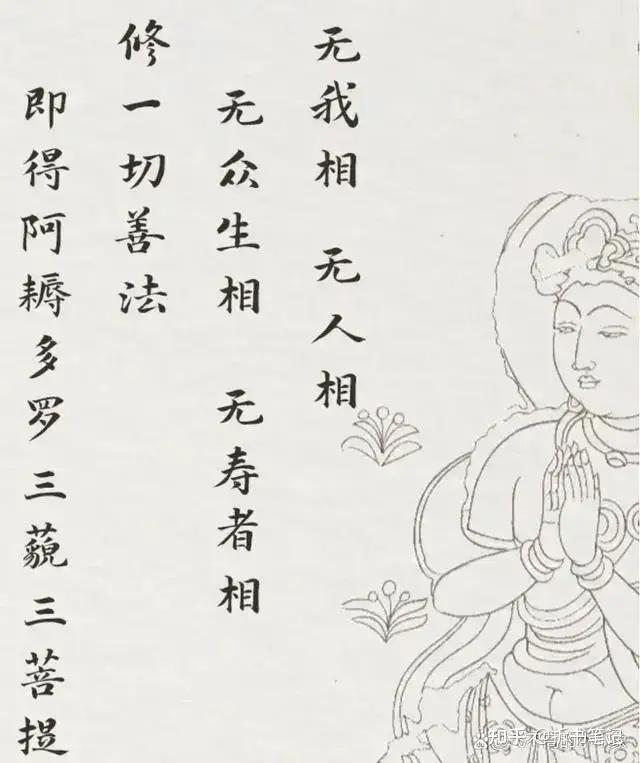 无我相 无人相
无众生相 无寿者相
修一切善法
即得阿耨多罗三藐三菩提